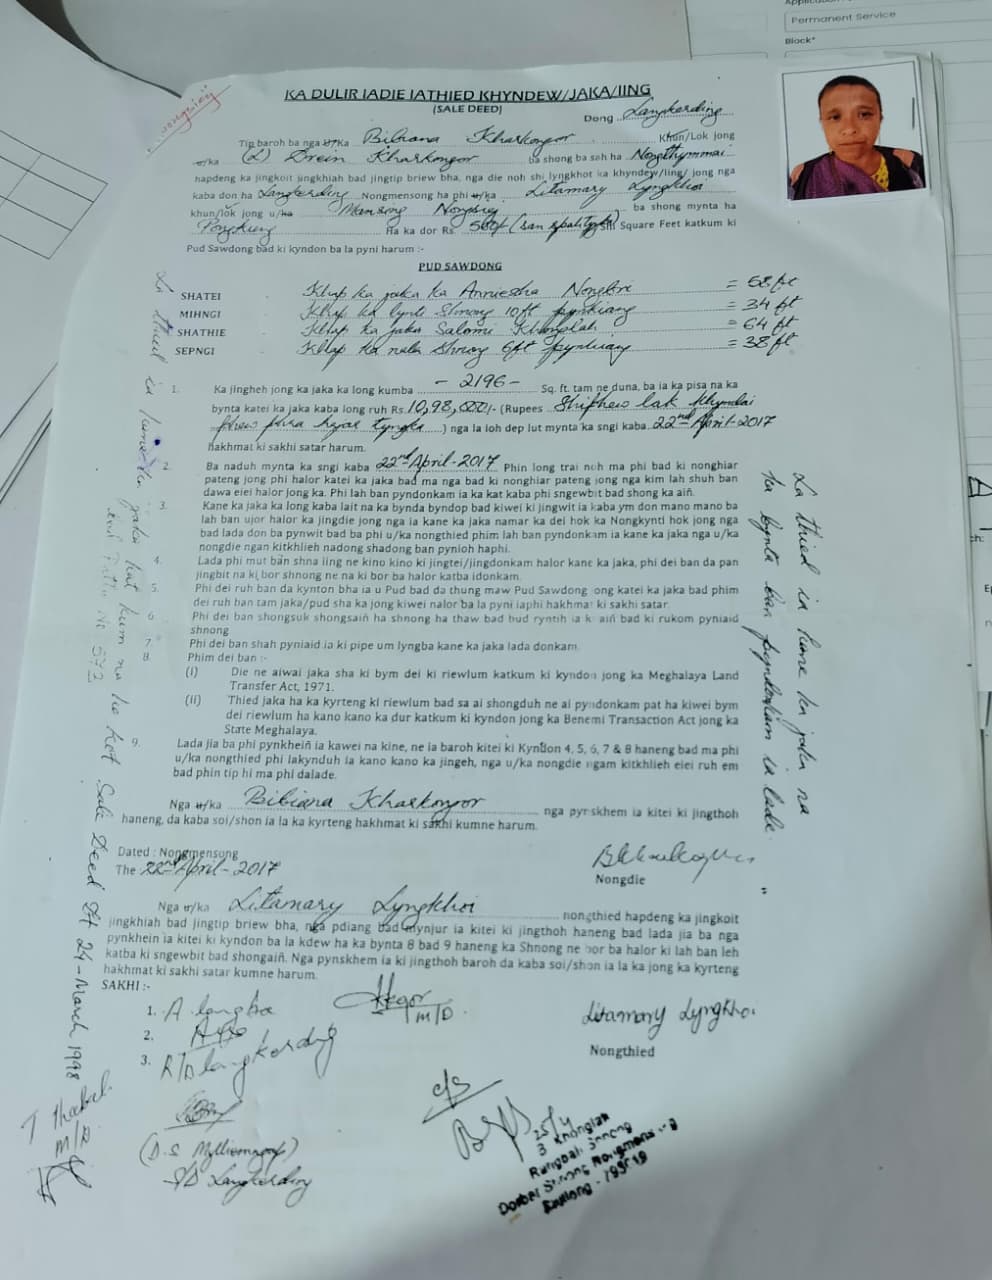 Permanent Service
Block*
KA DULIR IADIE IATHIED KHYNDEW/JAKA/IING
(SALE DEED)
Dong Langkerding
Tip baroh ba nga u/Ka Bibiana Kharkongor Khun/Lok jong
u/ka (L) Erein Kharkongor ba shong ba sah ha Nongthymmai
hapdeng ka jingkoit jingkhiah bad jingtip briew bha, nga die noh shi lyngkhot ka khyndew/iing/ jong nga
kaba don ha Langkerding Nongmensong ha phi u/ka Litamary Lyngkhoi
khun/lok jong u/ka ba shong mynta ha
Pongkung Ha ka dor Rs. 500/- (san spah tyngka) Shi Square Feet katkum ki
Pud Sawdong bad ki kyndon ba la pyni harum :-
PUD SAWDONG
SHATEI - Khap ka jaka ka Anniesha Nongbri = 68 ft
MIHNGI - Khap ka lynti Shnong 10ft pynkiang = 34 ft
SHATHIE - Khap ka jaka Salomi Khonglah = 64 ft
SEPNGI - Khap ka nala Shnong 6ft pynkiang = 38 ft
1. Ka jingheh jong ka jaka ka long kumba - 2196 - Sq. ft. tam ne duna, ba ia ka pisa na ka
bynta katei ka jaka kaba long ruh Rs. 10,98,000/- (Rupees Shiphew lak khyndai
phew phra hajar tyngka) nga la ioh dep lut mynta ka sngi kaba 22nd April-2017
hakhmat ki sakhi satar harum.
2. Ba naduh mynta ka sngi kaba 22nd April-2017 Phin long trai noh ma phi bad ki nonghiar
pateng jong phi halor katei ka jaka bad ma nga bad ki nonghiar pateng jong nga kim lah shuh ban
dawa eiei halor jong ka. Phi lah ban pyndonkam ia ka kat kaba phi sngewbit bad shong ka aiñ.
3. Kane ka jaka ka long kaba lait na ka bynda byndop bad kiwei ki jingwit ia kaba ym don mano mano ba
lah ban ujor halor ka jingdie jong nga ia kane ka jaka namar ka dei hok ka Nongkynti hok jong nga
bad lada don ba pynwit bad ba phi u/ka nongthied phim lah ban pyndonkam ia kane ka jaka nga u/ka
nongdie ngan kitkhlieh nadong shadong ban pynioh haphi.
4. Lada phi mut ban shna iing ne kino kino ki jingtei/jingdonkam halor kane ka jaka, phi dei ban da pan
jingbit na ki bor shnong ne na ki bor ba halor katba idonkam.
5. Phi dei ruh ban da kynton bha ia u Pud bad da thung maw Pud Sawdong jong katei ka jaka bad phim
dei ruh ban tam jaka/pud sha ka jong kiwei nalor ba la pyni iaphi hakhmat ki sakhi satar.
6. Phi dei ban shongsuk shongsaiñ ha shnong ha thaw bad bud ryntih ia ki aiñ bad ki rukom pyniaid
shnong
7. Phi dei ban shah pyniaid ia ki pipe um lyngba kane ka jaka lada donkam.
8. Phim dei ban :-
(i) Die ne aiwai jaka sha ki bym dei ki riewlum katkum ki kyndon jong ka Meghalaya Land
Transfer Act, 1971.
(ii) Thied jaka ha ka kyrteng ki riewlum bad sa ai shongduh ne ai pyndonkam pat ha kiwei bym
dei riewlum ha kano kano ka dur katkum ki kyndon jong ka Benemi Transaction Act jong ka
State Meghalaya.
9. Lada jia ba phi pynkheiñ ia kawei na kine, ne ia baroh kitei ki Kyndon 4, 5, 6, 7 & 8 haneng bad ma phi
u/ka nongthied phi lakynduh ia kano kano ka jingeh, nga u/ka nongdie ngam kitkhlieh eiei ruh em
bad phin tip hi ma phi dalade.
Nga u/ka Bibiana Kharkongor nga pyrskhem ia kitei ki jingthoh
haneng, da kaba soi/shon ia la ka kyrteng hakhmat ki sakhi kumne harum.
Dated : Nongmensong
The 22nd April-2017
Nongdie
Nga u/ka Litamary Lyngkhoi nongthied hapdeng ka jingkoit
jingkhiah bad jingtip briew bha, nga pdiang bad mynjur ia kitei ki jingthoh haneng bad lada jia ba nga
pynkhein ia kitei ki kyndon ba la kdew ha ka bynta 8 bad 9 haneng ka Shnong ne bor ba halor ki lah ban leh
katba ki sngewbit bad shongaiñ. Nga pynskhem ia ki jingthoh baroh da kaba soi/shon ia la ka jong ka kyrteng
hakhmat ki sakhi satar kumne harum.
SAKHI :-
1. A langba
M/D
2.
3. R/D Langkerding
Litamary Lyngkhoi
Nongthied
S/D Langkerding
c/s
25/4
Khonglah
Rangbah Shnong
Dorbar Shnong Nongmensong
Shillong -
La thied ia kane ka jaka na
ka bynta ban pyndonkam ia lade
La thied ia kane ka jaka kat kum na ka kot Sale Deed Dt 24-March 1998